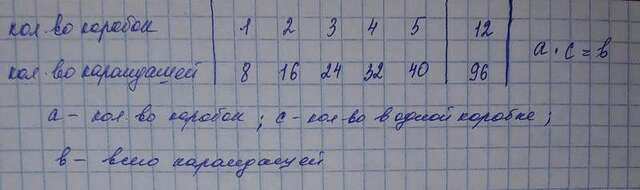 кол. во коробок 1 2 3 4 5 12
кол. во карандашей 8 16 24 32 40 96
а · с = в
а – кол во коробок ; с – кол во в одной коробке ;
в – всего карандашей